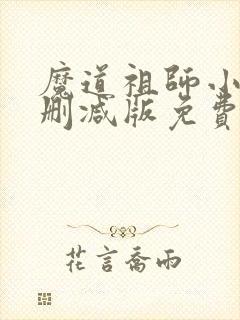 魔道祖師小
刪減版免費
花言喬雨